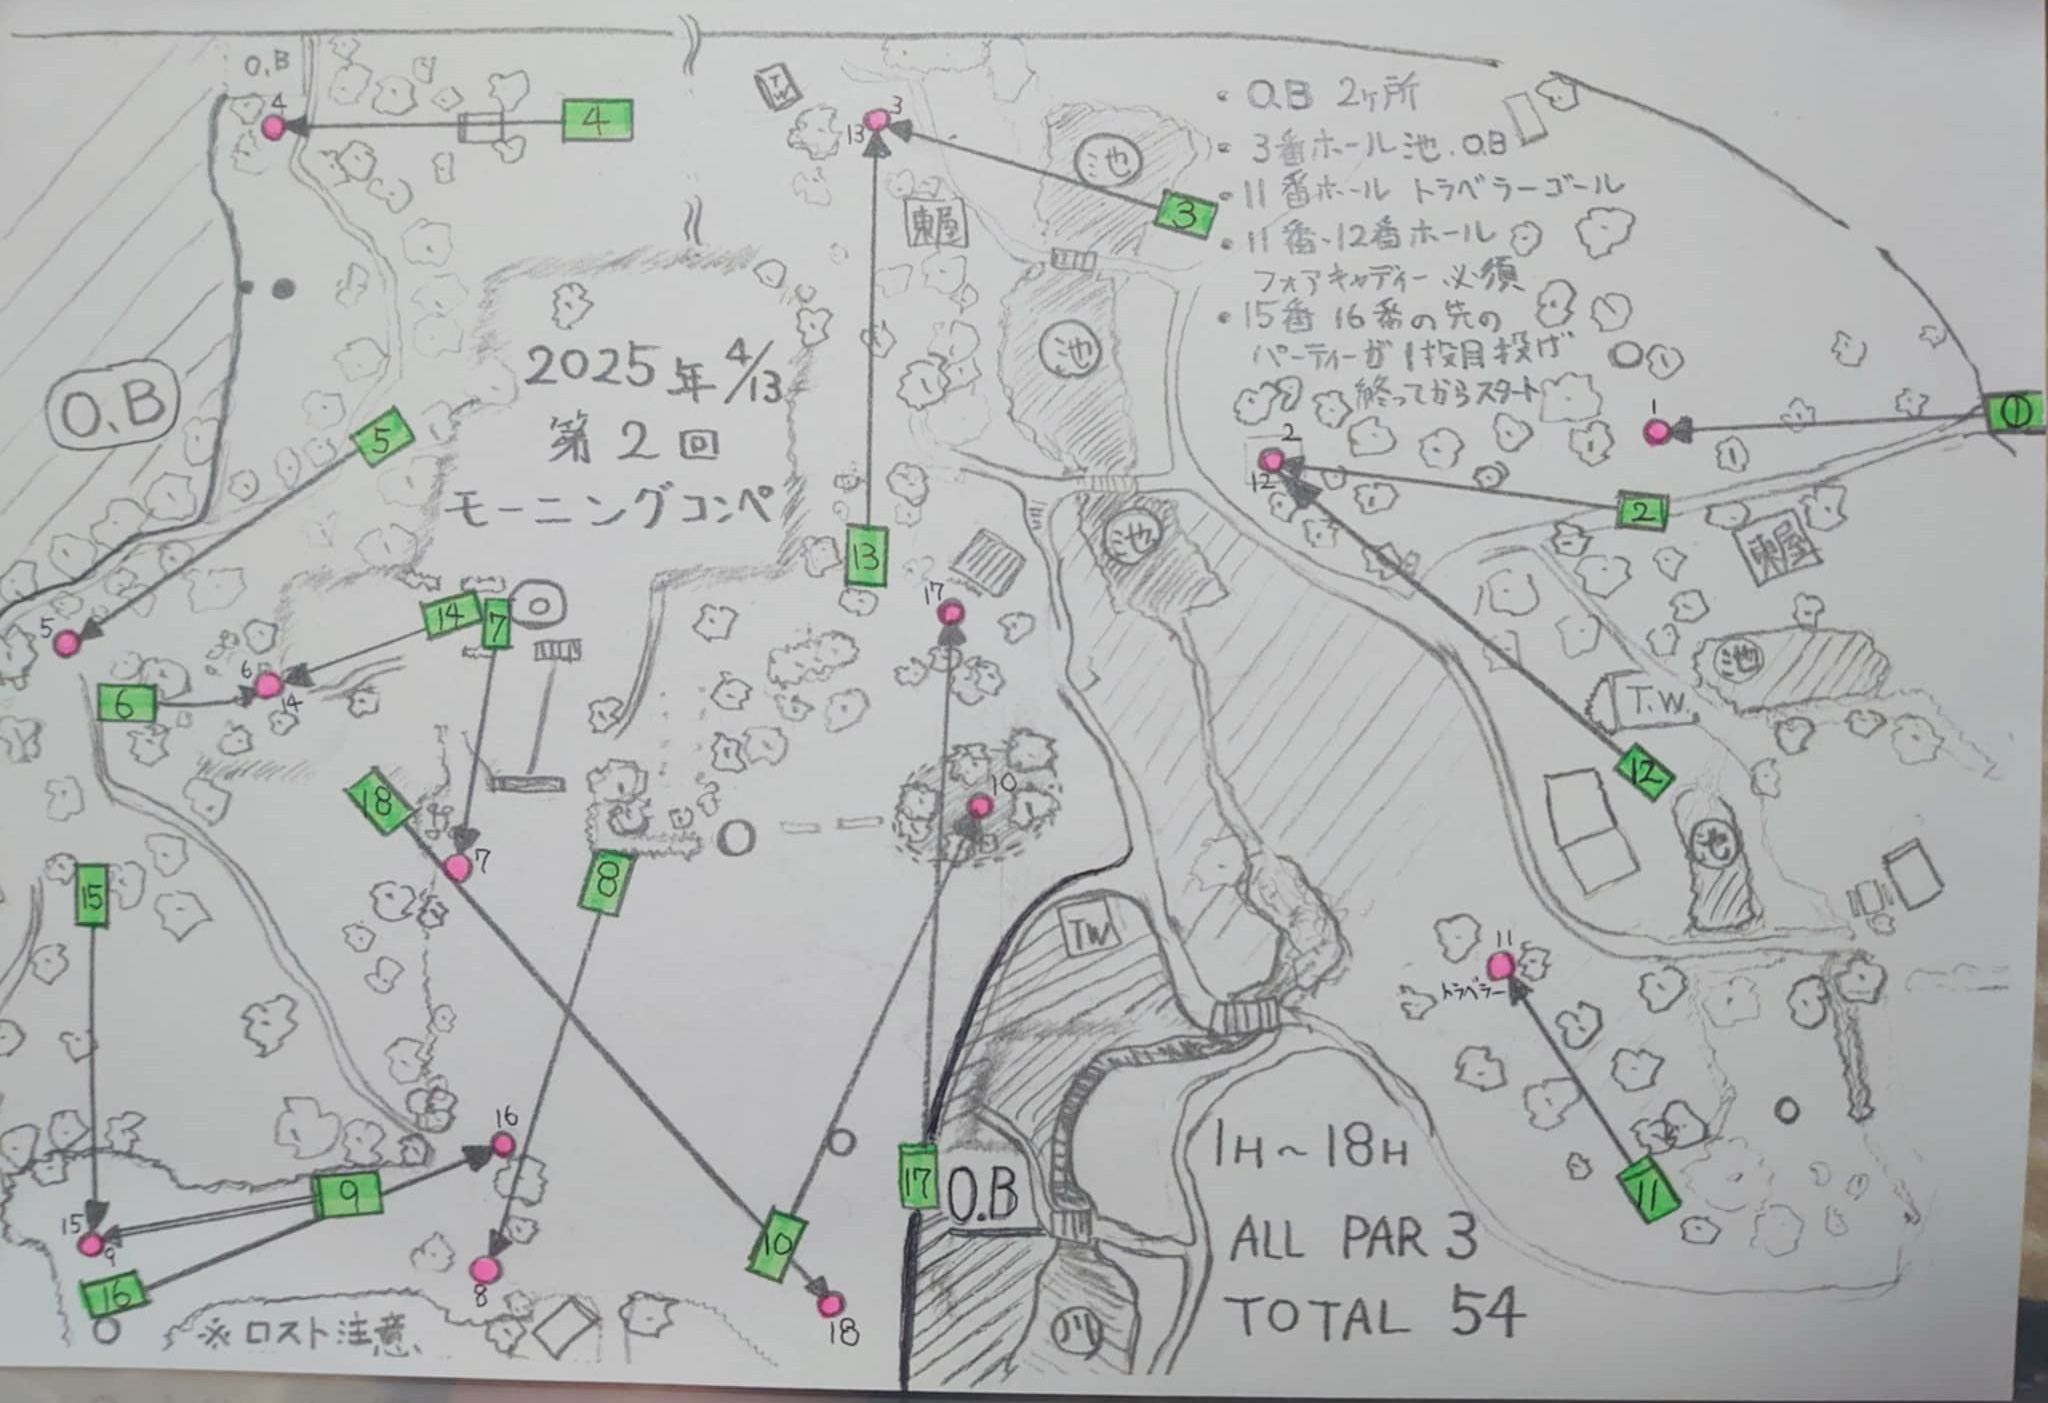 O.B
4
4
TW
3
13
池
3
東屋
・O.B 2ヶ所
・3番ホール池.O.B
・11番ホール トラベラーゴール
・11番・12番ホール
フォアキャディー必須
・15番 16番の先の
パーティーが1投目投げ
終ってからスタート
池
O.B
5
2025年4/13
第2回
モーニングコンペ
1
①
2
12
2
13
池
東屋
17
14
7
5
6
14
6
池
T.W.
12
18
7
8
10
池
15
TW
11
トラベラー
16
9
15
9
16
8
10
18
17
O.B
11
1H~18H
ALL PAR 3
TOTAL 54
川
※ロスト注意